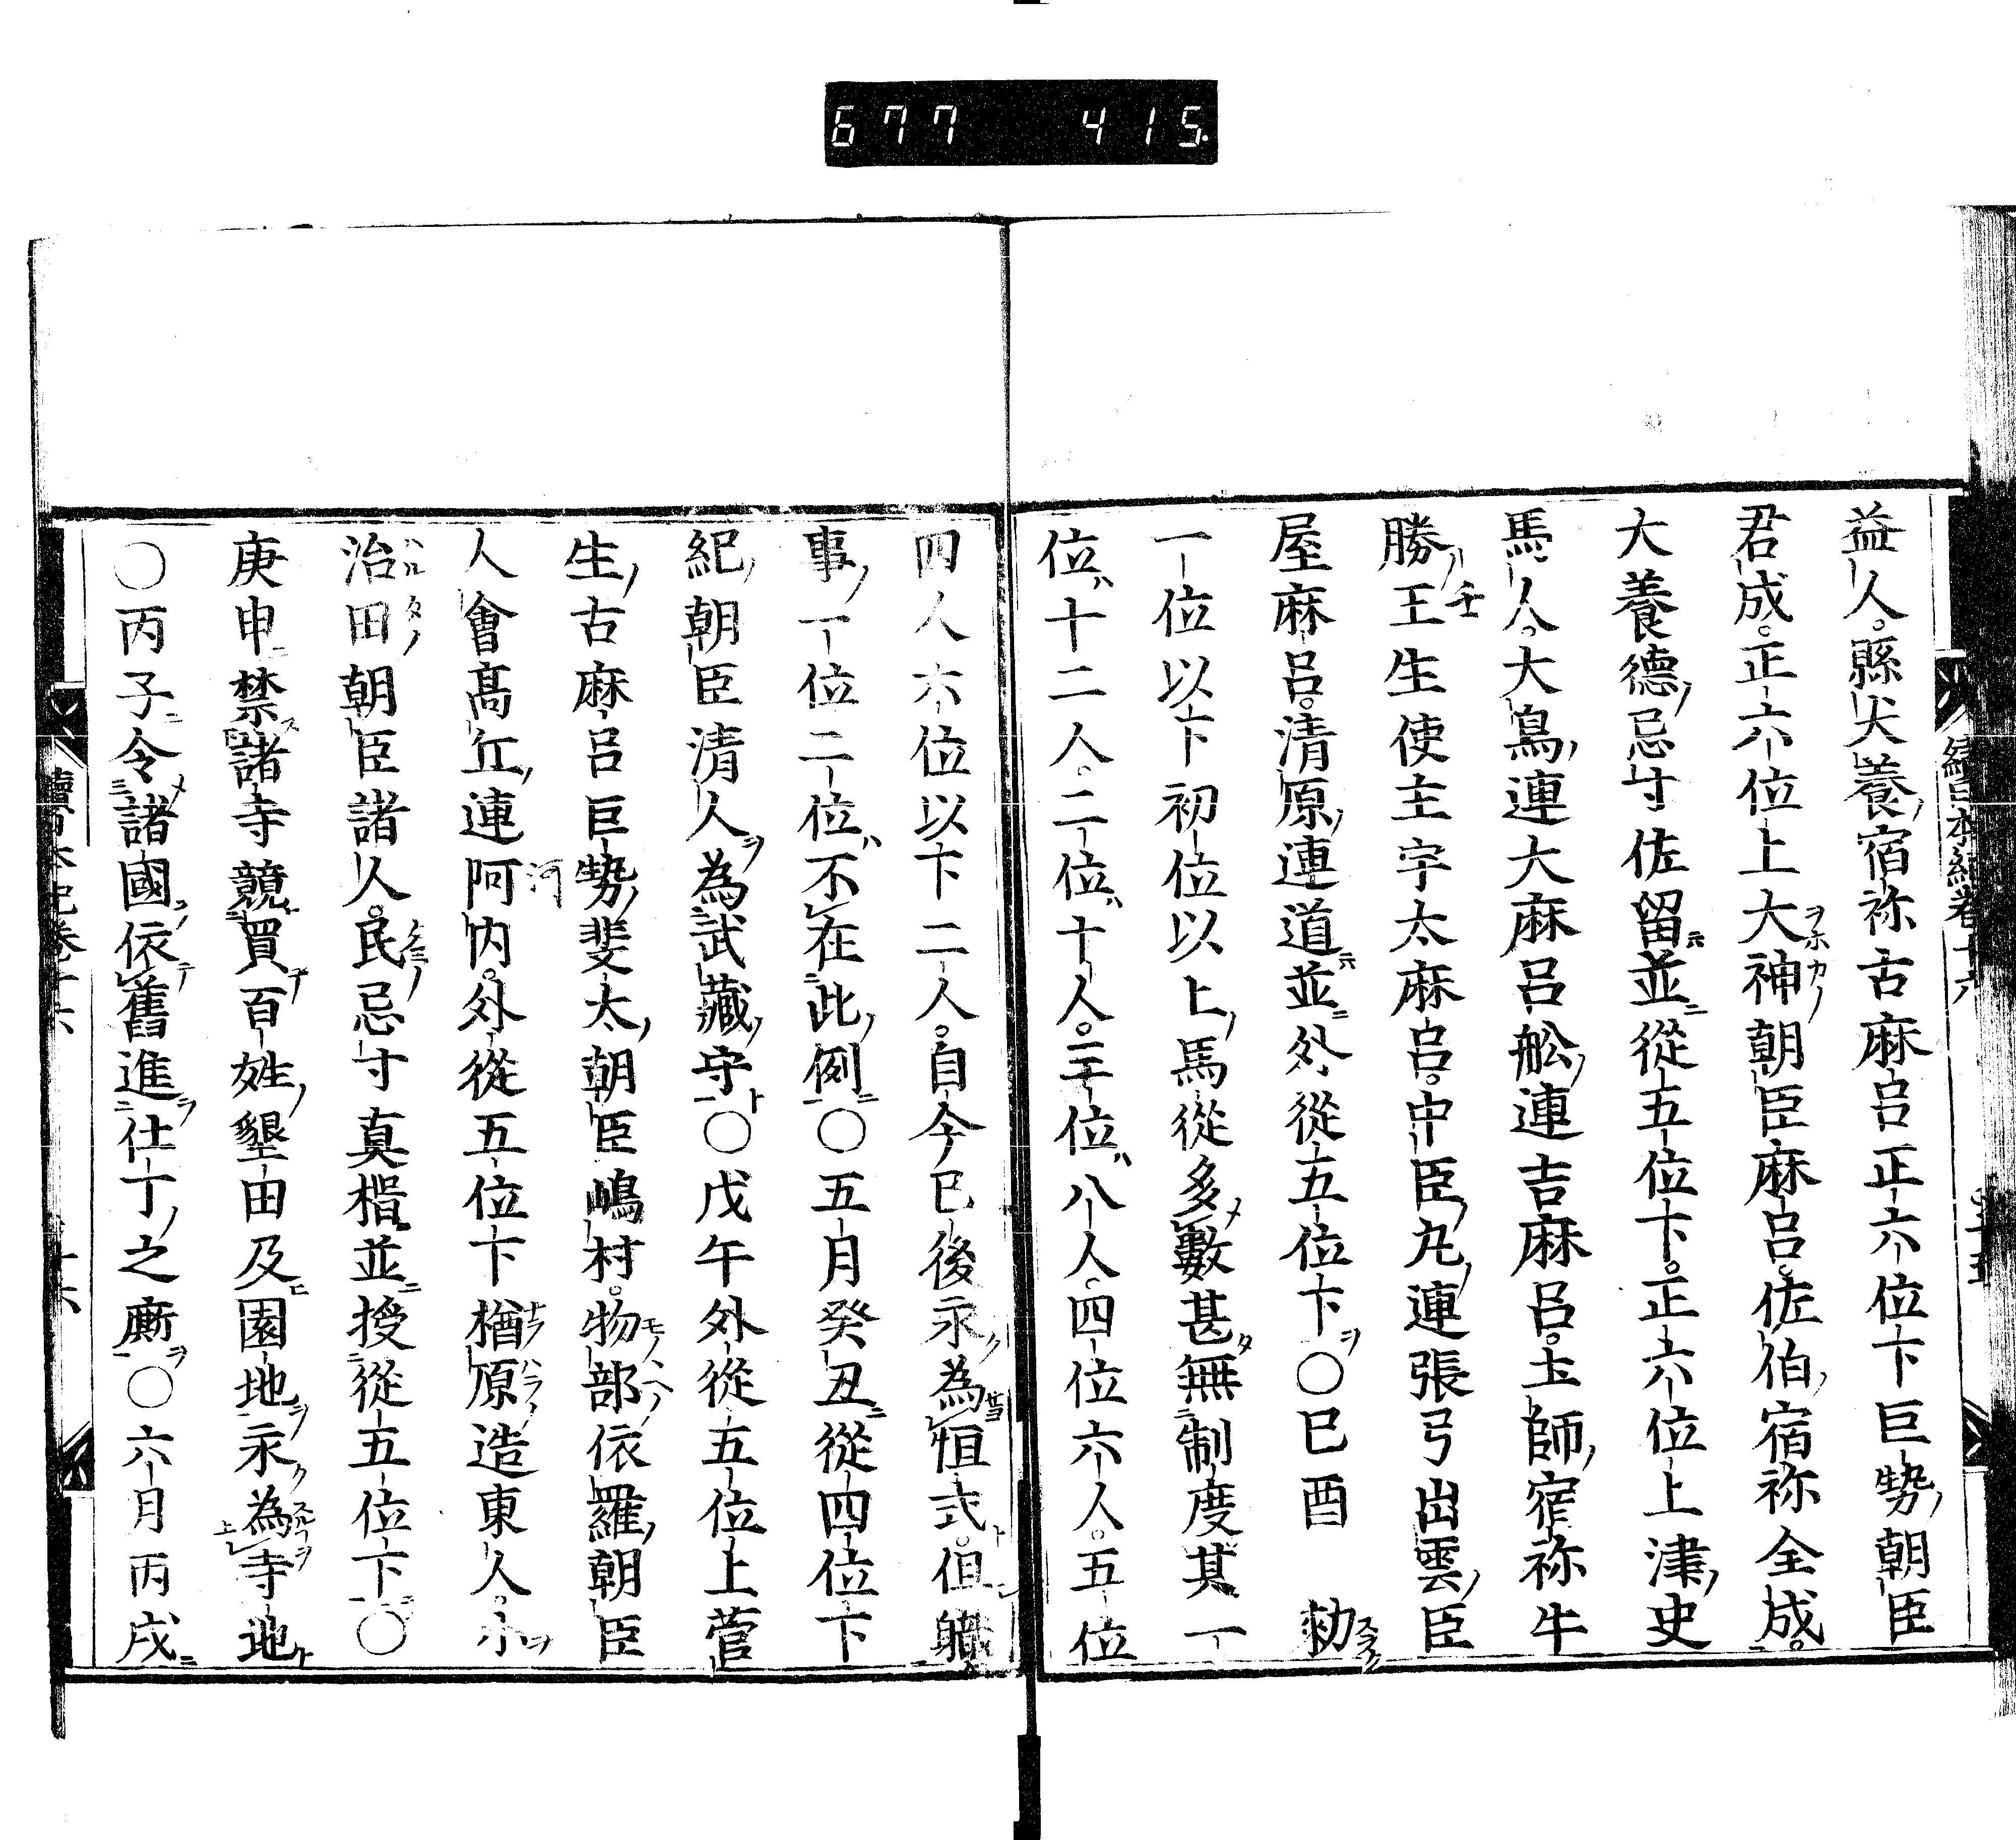 677 415.
益人。縣犬養宿祢古麻呂正六位下巨勢朝臣
君成。正六位上大神朝臣麻呂。佐伯宿祢全成。
大養德忌寸佐留並從五位下。正六位上津史
馬人。大鳥連大麻呂舩連吉麻呂。土師宿祢牛
勝。王生使主宇太麻呂。中臣丸連張弓出雲臣
屋麻呂。清原連道並外從五位下〇巳酉 勅
一位以下初位以上馬從多數甚無制度其一
位十二人。二位十人。三位八人。四位六人。五位
四人六位以下二人。自今已後永為恒式。但職
事一位二位不在此例〇五月癸丑從四位下
紀朝臣清人為武藏守〇戊午外從五位上菅
生古麻呂巨勢斐太朝臣嶋村。物部依羅朝臣
人會高丘連阿内。外從五位下楢原造東人。小
治田朝臣諸人。民忌寸真楷並授從五位下〇
庚申禁諸寺競買百姓墾田及園地永為寺地
〇丙子令諸國依舊進仕丁之廝〇六月丙戌